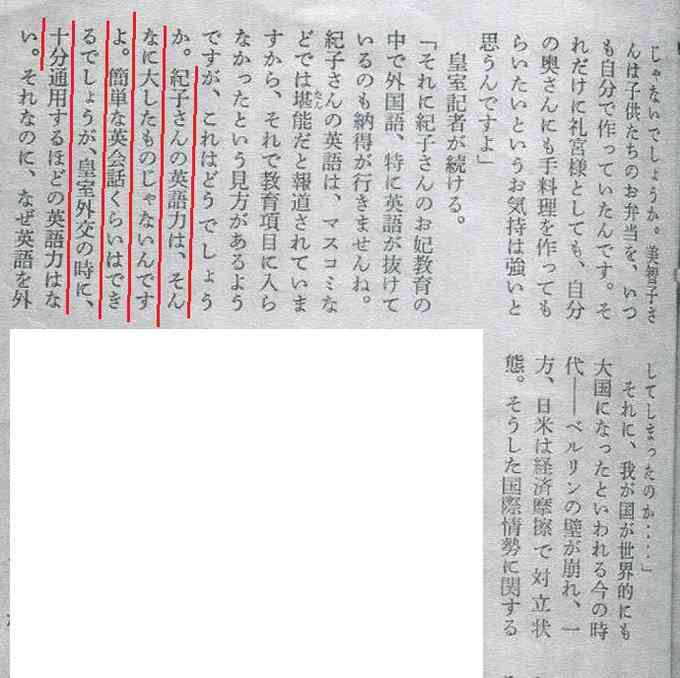 じゃないでしょうか。美智子さ
んは子供たちのお弁当を、いつ
も自分で作っていたんです。そ
れだけに礼宮様としても、自分
の奥さんにも手料理を作っても
らいたいというお気持は強いと
思うんですよ」
皇室記者が続ける。
「それに紀子さんのお妃教育の
中で外国語、特に英語が抜けて
いるのも納得が行きませんね。
紀子さんの英語は、マスコミな
どでは堪能だと報道されていま
たん
すから、それで教育項目に入ら
なかったという見方があるよう
ですが、これはどうでしょう
か。紀子さんの英語力は、そん
なに大したものじゃないんです
よ。簡単な英会話くらいはでき
るでしょうが、皇室外交の時に、
十分通用するほどの英語力はな
い。それなのに、なぜ英語を外
してしまったのか‥‥」
それに、我が国が世界的にも
大国になったといわれる今の時
代――ベルリンの壁が崩れ、一
方、日米は経済摩擦で対立状
態。そうした国際情勢に関する